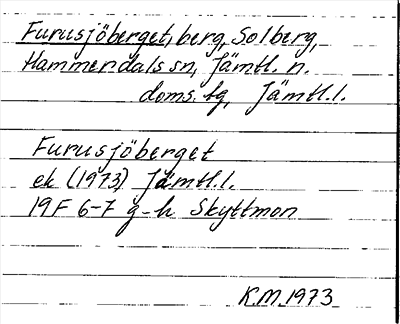 Furusjöberget, berg, Solberg,
Hammerdals sn, Jämtl. n.
doms. tg, Jämtl.l.
Furusjöberget
ek (1973) Jämtl.l.
19F 6-7 g-h Skyttmon
K.M. 1973